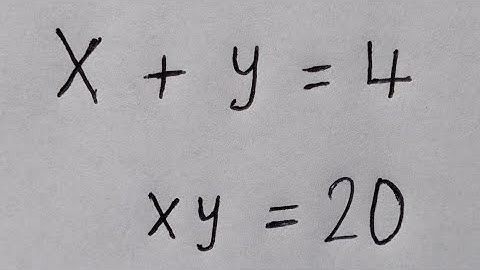 X + y = 4
xy = 20